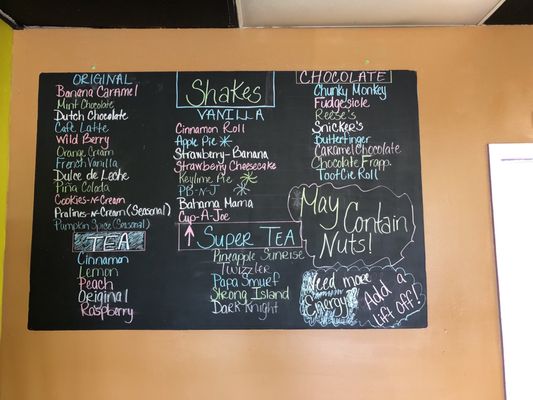 ORIGINAL
Banana Caramel
Mint Chocolate
Dutch Chocolate
Cafe Latte
Wild Berry
Orange Cream
French Vanilla
Dulce de Leche
Piña Colada
Cookies-n-Cream
Pralines-n-Cream (Seasonal)
Pumpkin Spice (Seasonal)
TEA
Cinnamon
Lemon
Peach
Original
Raspberry
Shakes
VANILLA
Cinnamon Roll
Apple Pie
Strawberry-Banana
Strawberry Cheesecake
Keylime Pie
PB-N-J
Bahama Mama
Cup-A-Joe
SUPER TEA
Pineapple Sunrise
Twizzler
Papa Smurf
Strong Island
Dark Knight
CHOCOLATE
Chunky Monkey
Fudgesicle
Reese's
Snicker's
Butterfinger
Caramel Chocolate
Chocolate Frapp.
Tootsie Roll
May
Contain
Nuts!
Need more
Energy?
Add a
lift off!